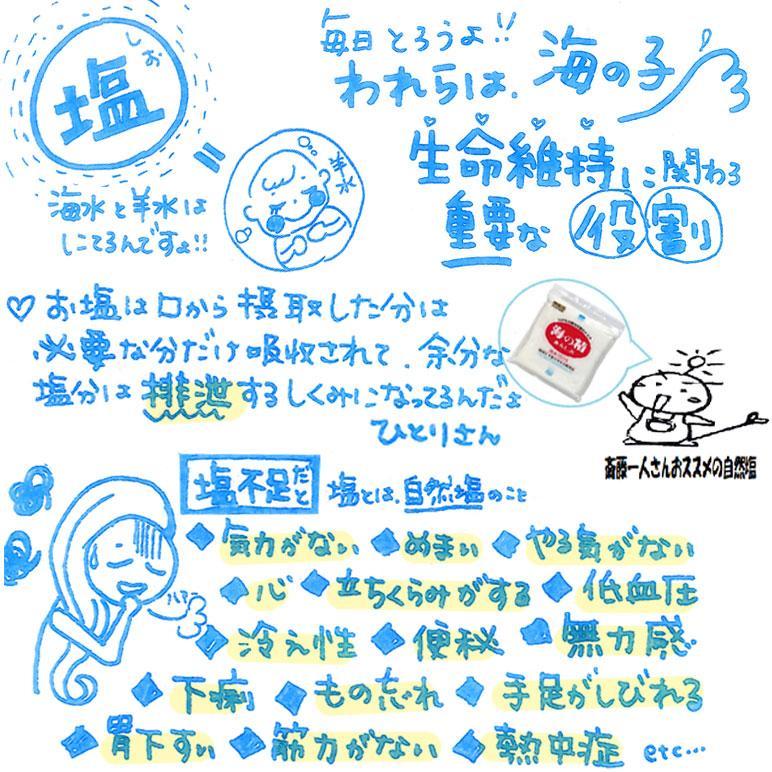 しお
塩
毎日とろうよ!!
われらは、海の子
海水と羊水は
にてるんですよ!!
羊水
生命維持に関わる
重要な役割
♡お塩は口から摂取した分は
必要な分だけ吸収されて、余分な
塩分は排泄するしくみになってるんだよ
ひとりさん
海の精
あらしお
斎藤一人さんおススメの自然塩
塩不足だと 塩とは、自然塩のこと
◆気力がない ◆めまい ◆やる気がない
◆心 ◆立ちくらみがする ◆低血圧
◆冷え性 ◆便秘 ◆無力感
◆下痢 ◆もの忘れ ◆手足がしびれる
◆胃下すい ◆筋力がない ◆熱中症 etc…